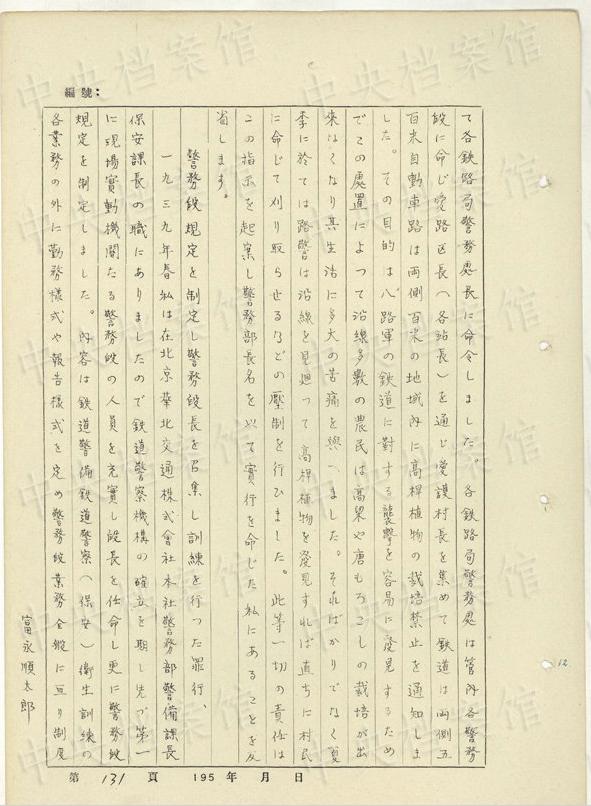 編號:
て各鉄路局警務處長に命令しました。各鉄路局警務處は管內各警務
段に命じ愛路区長(各站長)を通じ愛護村長を集めて鉄道は両側五
百米自動車路は両側百米の地域內に高稈植物の栽培禁止を通知しま
した。その目的は八路軍の鉄道に對する襲擊を容易に発見するため
でこの處置によつて沿線多数の農民は高粱や唐もろこしの栽培が出
來なくなり其生活に多大の苦痛を與へました。そればかりでなく夏
季に於ては路警は沿線を見廻つて高稈植物を発見すれば直ちに村民
に命じて刈り取らせるなどの壓制を行ひました。此等一切の責任は
この指示を起案し警務部長名を以て實行を命じた私にあることを反
省します。
警務段規定を制定し警務段長を召集し訓練を行つた罪行、
一九三九年春私は在北京華北交通株式會社本社警務部警備課長
保安課長の職にありましたので鉄道警察機構の確立を期し先づ第一
に現場實動機関たる警務段の人員を充實し段長を任命し更に警務段
規定を制定しました。內容は鉄道警備鉄道警察(保安)衛生訓練の
各業務の外に勤務様式や報告様式を定め警務段業務全般に亘り制度
富永順太郎
第131頁 195 年 月 日
12
中央档案馆